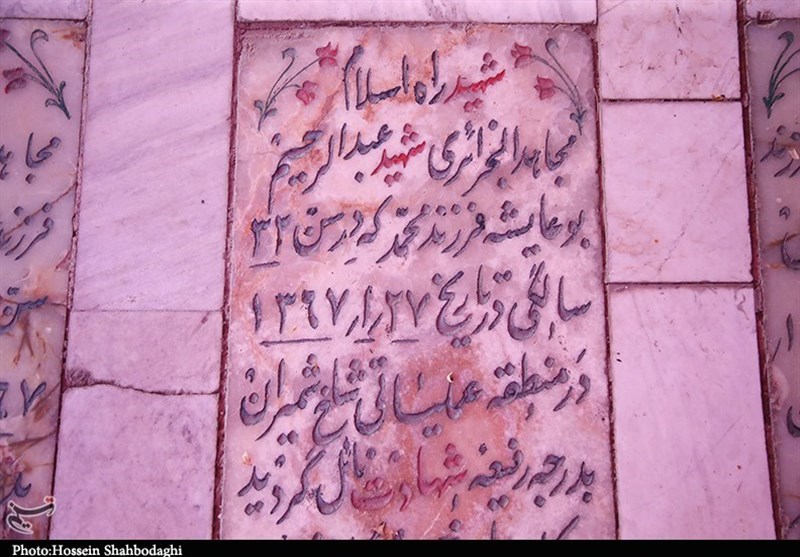 شهید راه اسلام
مجاهد الجزائری شهید عبدالرحیم
بوعایشه فرزند محمد که در سن ۳۲
سالگی در تاریخ ۲۷ / ۱ / ۱۳۶۷
در منطقه عملیاتی شلخ شمیران
بدرجه رفیعه شهادت نائل گردید
فرزند
سن
تسنیم
Photo:Hossein Shahbodaghi